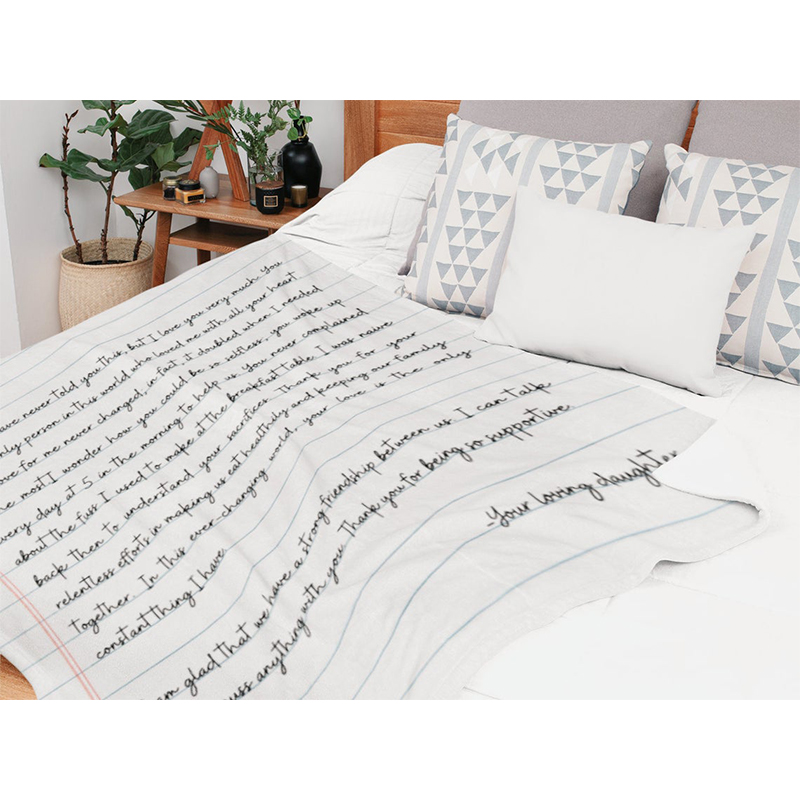 have never told you this, but I love you very much. You
only person in this world who loved me with all your heart
love for me never changed, in fact, it doubled when I needed
the most. I wonder how you could be so selfless. you woke up
every day at 5 in the morning to help us. You never complained
about the fuss I used to make at the breakfast table. I was naive
back then to understand your sacrifices. Thank you for your
relentless efforts in making us eat healthily and keeping our family
together. In this ever-changing world, your love is the only
constant thing I have
am glad that we have a strong friendship between us. I can talk
uss anything with you. Thank you for being so supportive
-Your loving daughter